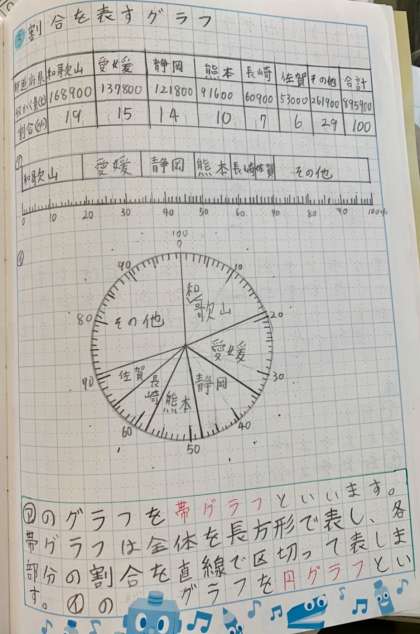 割合を表すグラフ
都道府県 和歌山 愛媛 静岡 熊本 長崎 佐賀 その他 合計
168900 139800 121800 91600 60900 53000 261900 895900
割合(%) 19 15 14 10 7 6 29 100
㋐
和歌山 愛媛 静岡 熊本 長崎 佐賀 その他
0 10 20 30 40 50 60 70 80 90 100%
㋑
100
0
90 10
和歌山
その他
80 20
愛媛
佐賀 長崎 熊本 静岡
90 30
60 50 40
㋐のグラフを帯グラフといいます。
帯グラフは全体を長方形で表し、各
部分の割合を直線で区切って表しま
す。㋑の グラフを円グラフとい